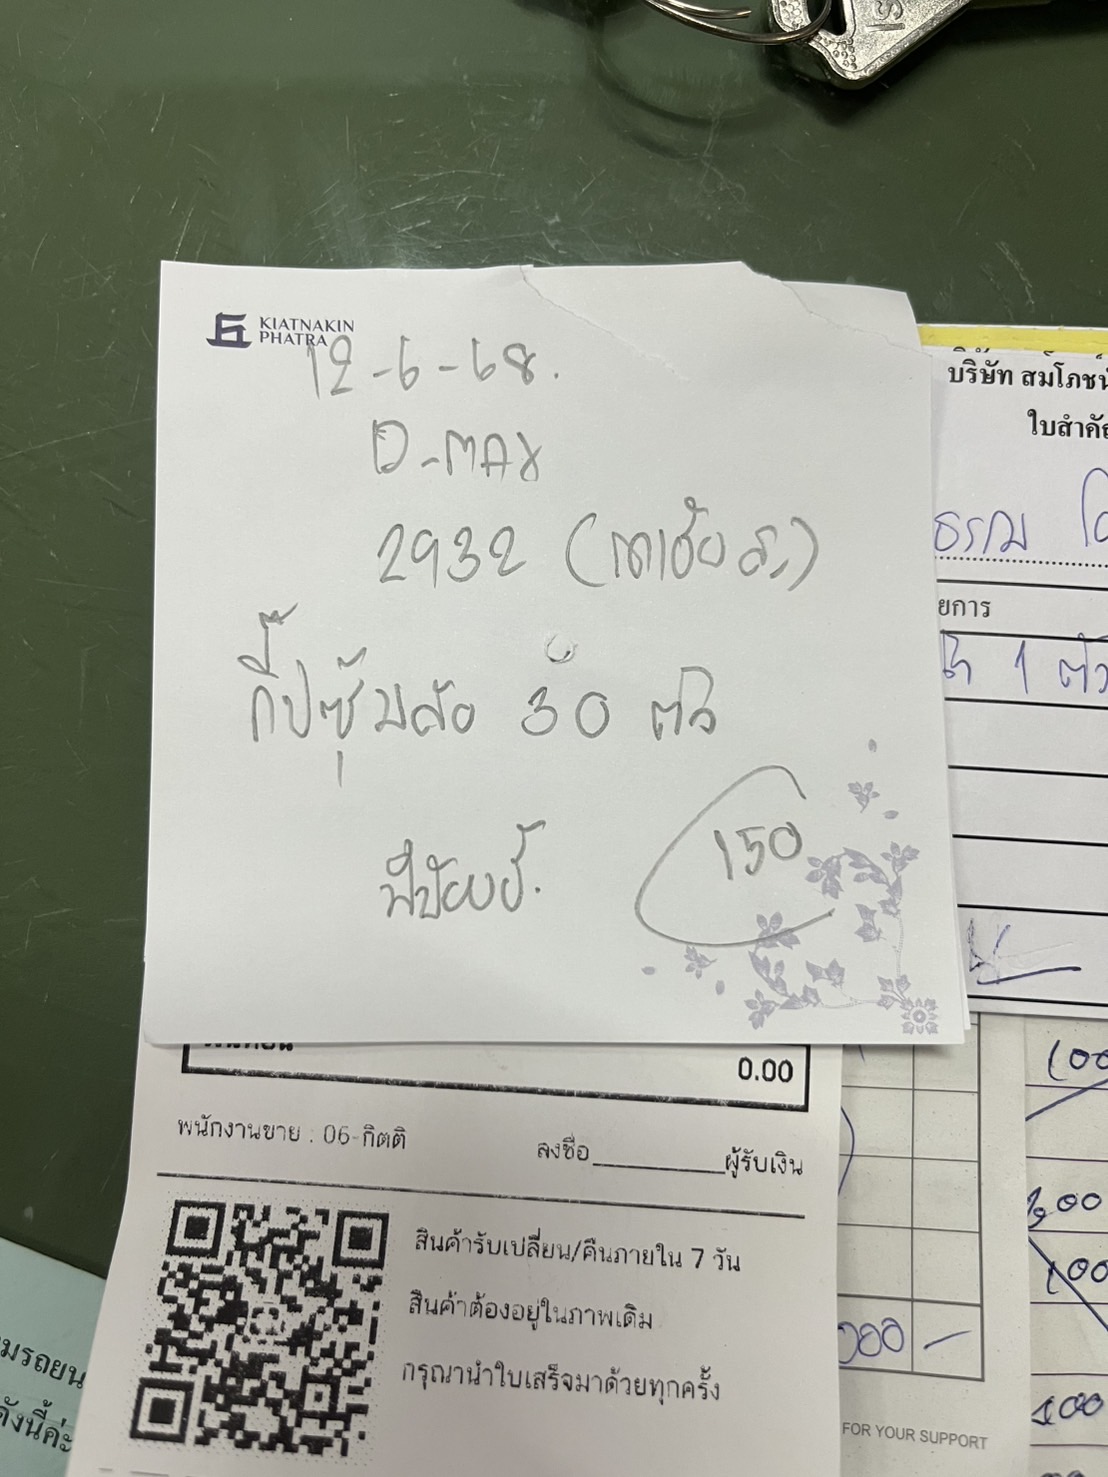 KIATNAKIN
PHATRA
12-6-68.
D-MAX
2932
กิ๊ปซุ้มล้อ 30 ตัว
150
บริษัท สมโภชน์
ใบสำคัญ
1 ตัว
0.00
พนักงานขาย : 06-กิตติ
ลงชื่อ ผู้รับเงิน
สินค้ารับเปลี่ยน/คืนภายใน 7 วัน
สินค้าต้องอยู่ในภาพเดิม
กรุณานำใบเสร็จมาด้วยทุกครั้ง
100
100
100
000 -
FOR YOUR SUPPORT
มรถยน
ดังนี้ค่ะ